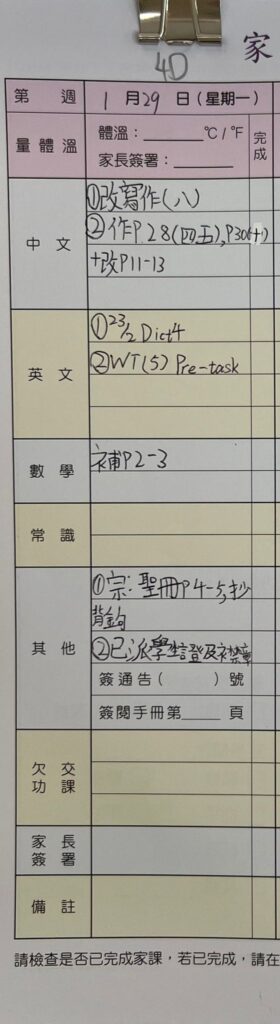 4D
家
第 週
1 月 29 日 (星期一)
量體溫
體溫:______ °C / °F
家長簽署:______
完成
中 文
①改寫作(八)
②作P.28(四五), P30(十)
+改P11-13
英 文
①23/2 Dict4
②WT(5) Pre-task
數 學
補P2-3
常 識
其 他
①宗: 聖冊P4-5,抄
背鈎
②已派學生證及襟章
簽通告( )號
簽閱手冊第____頁
欠 交
功 課
家 長
簽 署
備 註
請檢查是否已完成家課,若已完成,請在